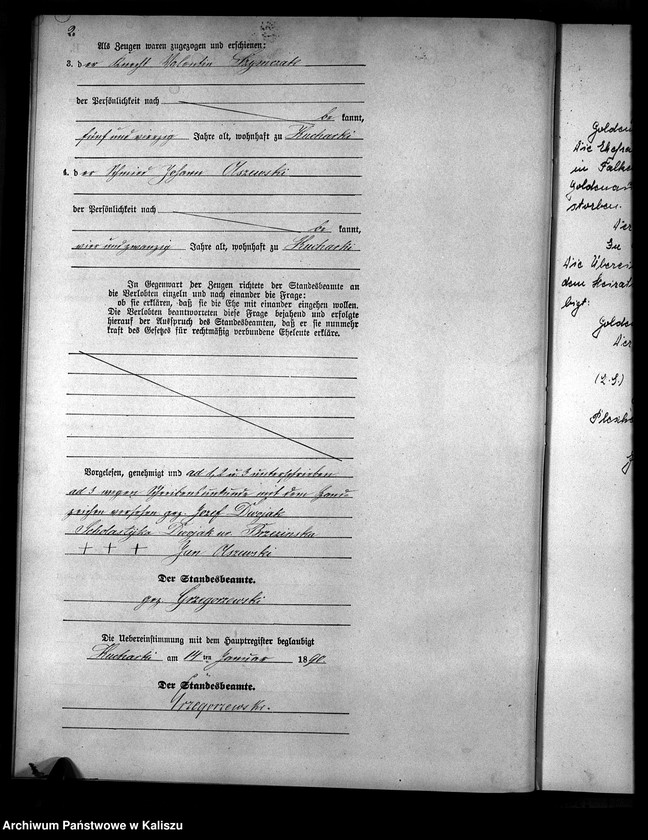 2.
Als Zeugen waren zugezogen und erschienen:
3. der Knecht Valentin
der Persönlichkeit nach
be kannt,
fünf und vierzig Jahre alt, wohnhaft zu Kucharki
4. der Schmied Johann Olszewski
der Persönlichkeit nach
be kannt,
vier und zwanzig Jahre alt, wohnhaft zu Kucharki
In Gegenwart der Zeugen richtete der Standesbeamte an
die Verlobten einzeln und nach einander die Frage:
ob sie erklären, daß sie die Ehe mit einander eingehen wollen.
Die Verlobten beantworteten diese Frage bejahend und erfolgte
hierauf der Ausspruch des Standesbeamten, daß er sie nunmehr
kraft des Gesetzes für rechtmäßig verbundene Eheleute erkläre.
Vorgelesen, genehmigt und ad 1, 2 u 3 unterschrieben
ad 3 wegen Schreibensunkunde mit dem Hand
zeichen versehen gez. Jozef Dwojak
Scholastyka Dwojak Brzezinska
+ + + Jan Olszewski
Der Standesbeamte.
gez Grzegorzewski
Die Uebereinstimmung mit dem Hauptregister beglaubigt
Kucharki am 14 ten Januar 1890.
Der Standesbeamte.
Grzegorzewski.
Golden
die Ehefra
in Falke
Goldenau
storben.
Der
In
die Überei
dem Heirat
bigt:
Golden
Der
(L. S.)
Archiwum Państwowe w Kaliszu